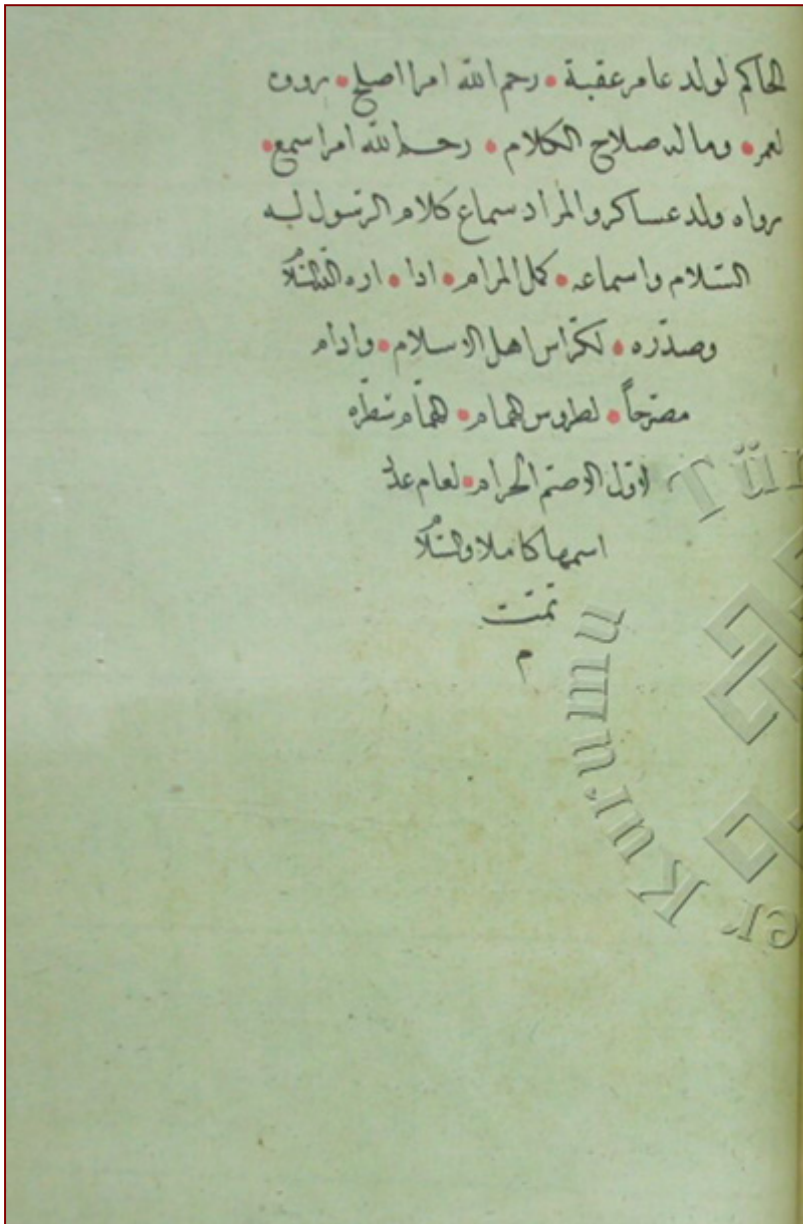 الحاكم لولد عامر عقبة • رحم الله امرا اصلح • رووه
لعمر • وما له صلاح الكلام • رحم الله امرا سمع •
رواه ولد عساكر والمراد سماع كلام الرسول له
السلام واسماعه • كمل المرام • ادا •
وصدره • لكراس اهل الاسلام • وادام
مصرحاً • لطروس همام • همام سطره
اول الاصم الحرام • لعام عد
اسمها كاملا والسلام
تمت
م
er Kurumu
Tür